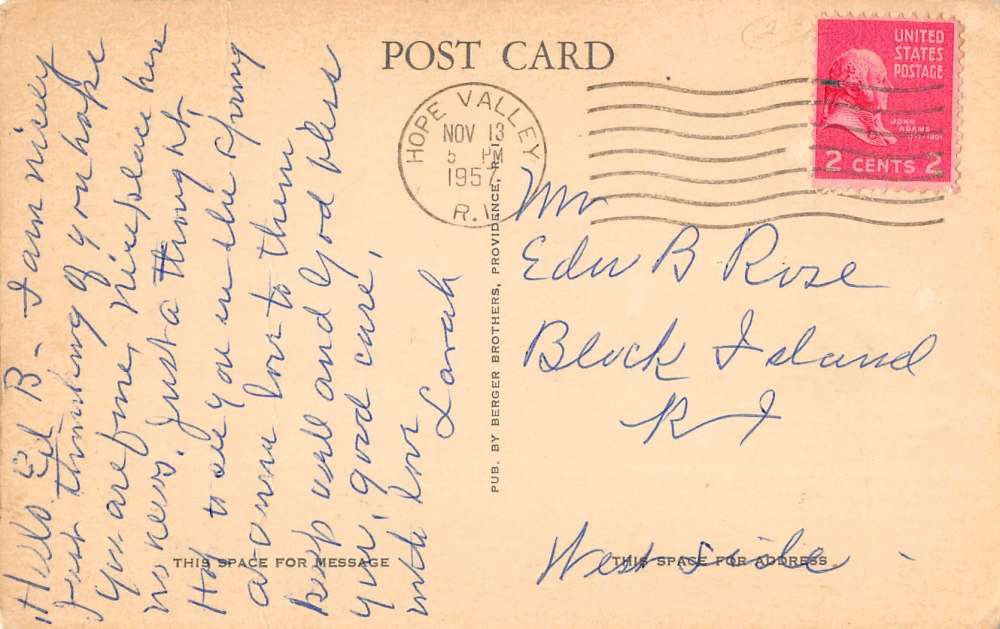 POST CARD
UNITED
STATES
POSTAGE
JOHN
ADAMS
2 CENTS 2
HOPE VALLEY
NOV 13
5 PM
1957
R.I.
Hello Ed B - I am
Just thinking of you hope
you are fine, place here
no news. Just a thought,
to see you in the spring
love to them
keep well and God bless
you, good care,
with love
Sarah
PUB. BY BERGER BROTHERS, PROVIDENCE, R. I.
Mr
Edw B Rose
Block Island
R I
West side
THIS SPACE FOR MESSAGE
THIS SPACE FOR ADDRESS